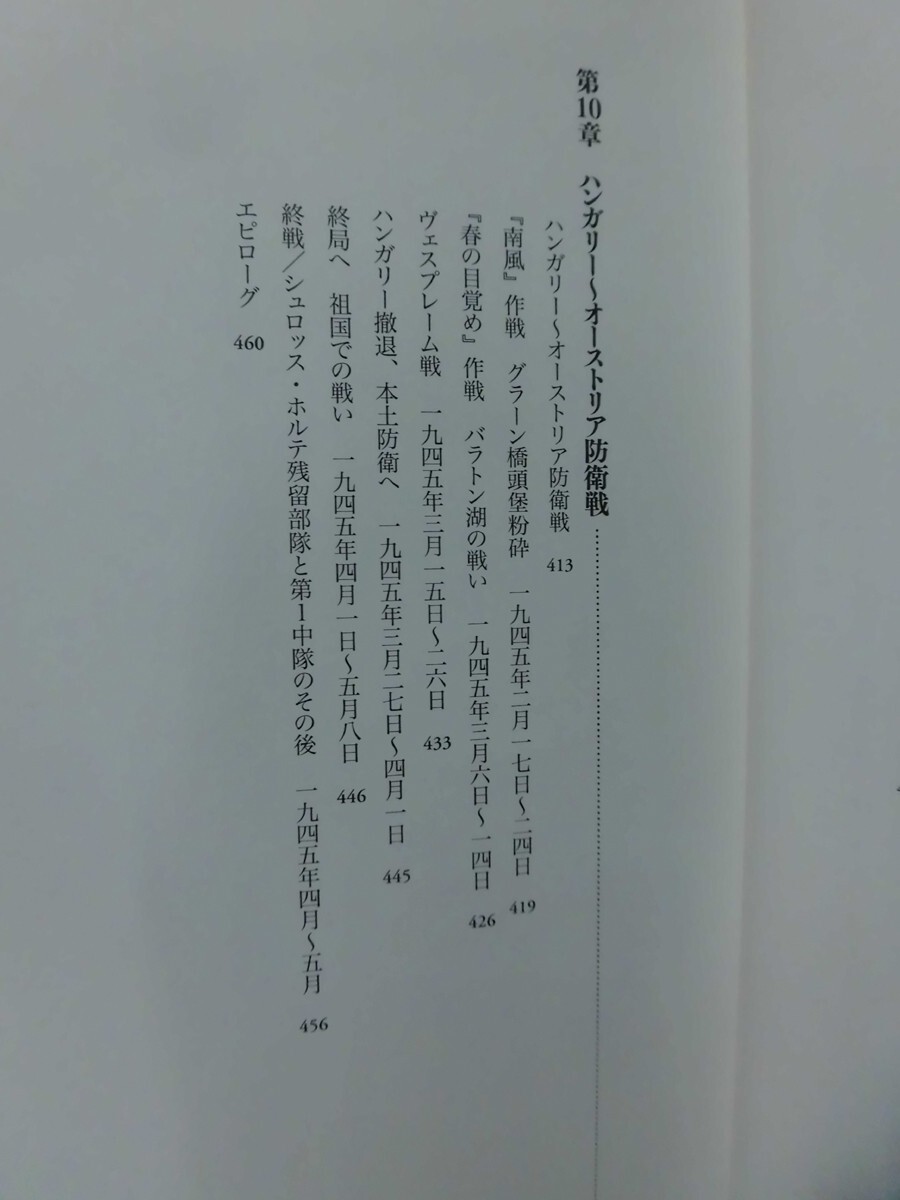 第10章 ハンガリー〜オーストリア防衛戦……………………
ハンガリー〜オーストリア防衛戦 413
『南風』作戦 グラーン橋頭堡粉砕 一九四五年二月一七日〜二四日 419
『春の目覚め』作戦 バラトン湖の戦い 一九四五年三月六日〜一四日 426
ヴェスプレーム戦 一九四五年三月一五日〜二六日 433
ハンガリー撤退、本土防衛へ 一九四五年三月二七日〜四月一日 445
終局へ 祖国での戦い 一九四五年四月一日〜五月八日 446
終戦／シュロッス・ホルテ残留部隊と第1中隊のその後 一九四五年四月〜五月 456
エピローグ 460